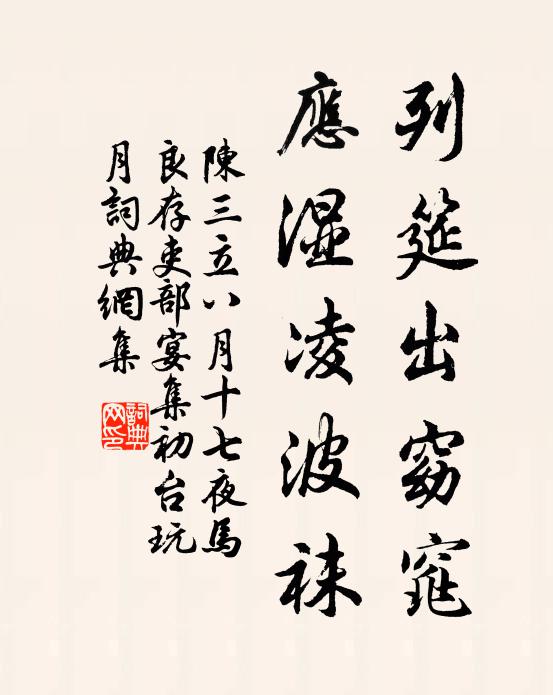 列筵出窈窕
應濕凌波袜
陳三立八月十七夜馬
良存吏部宴集初台玩
月詞典網集
詞典网印